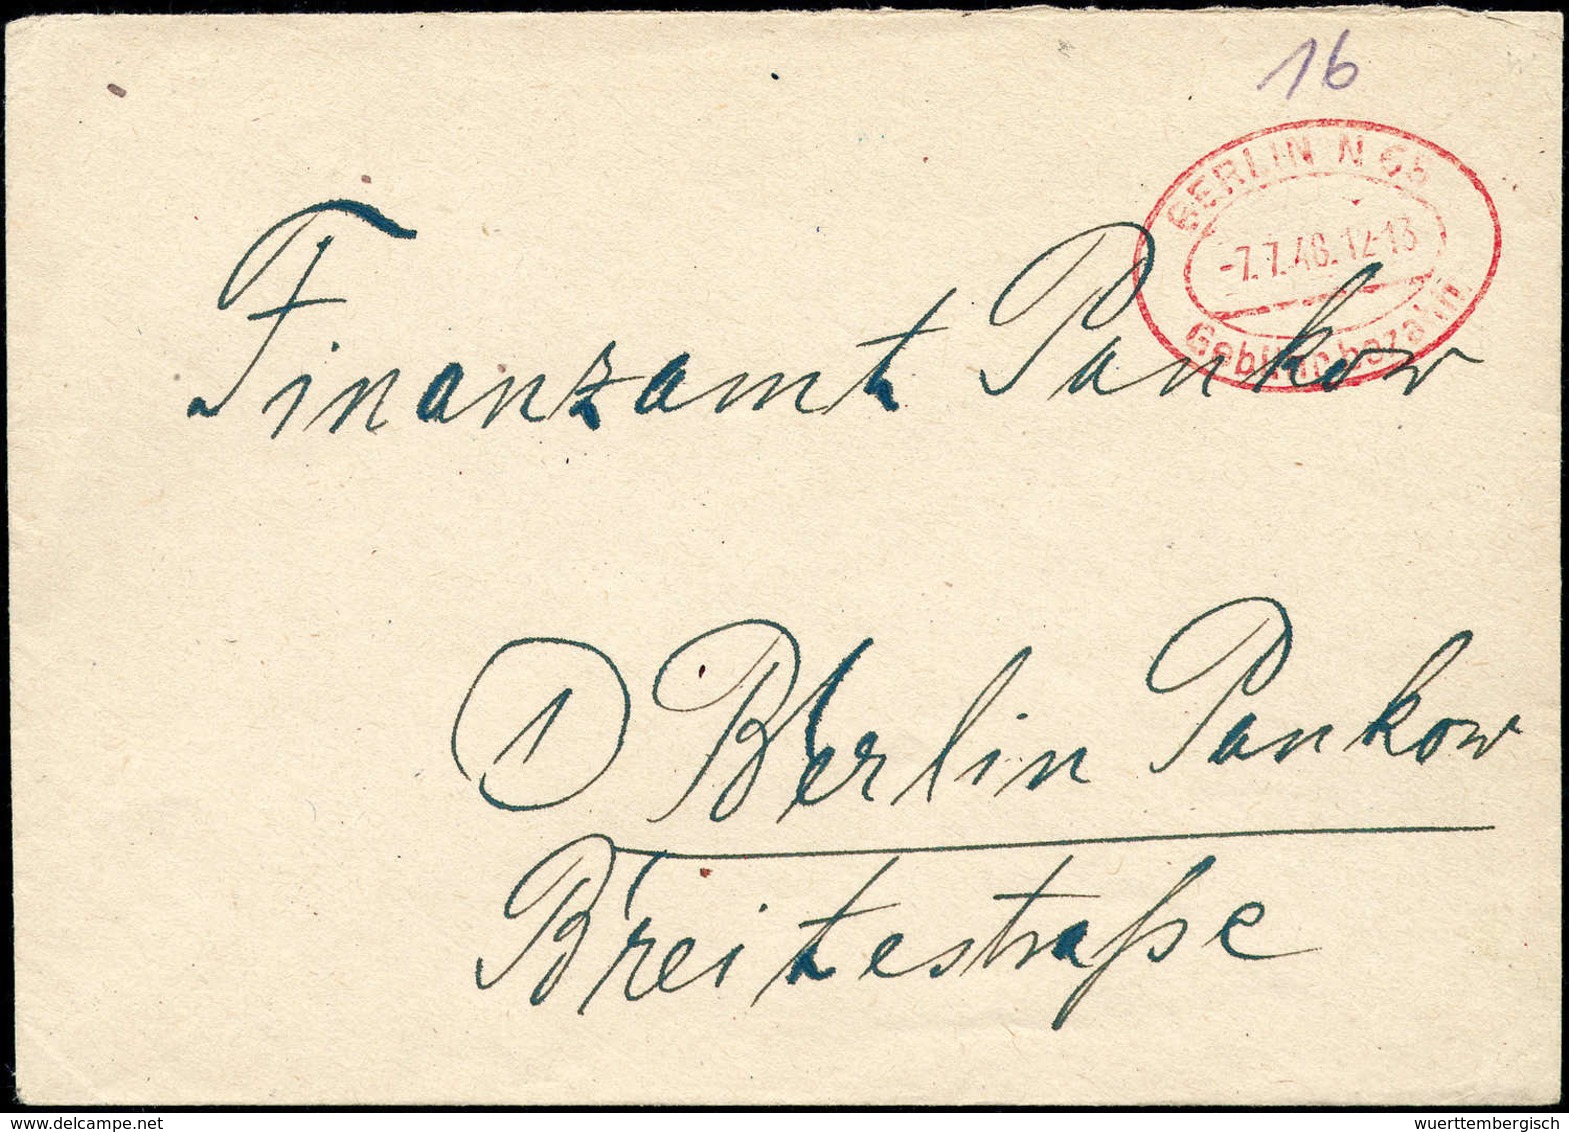 16
BERLIN N 65
-7.7.48.12-13
Gebühr bezahlt
Finanzamt Pankow
1 Berlin Pankow
Breitestraße
delcampe.net
wuerttembergisch